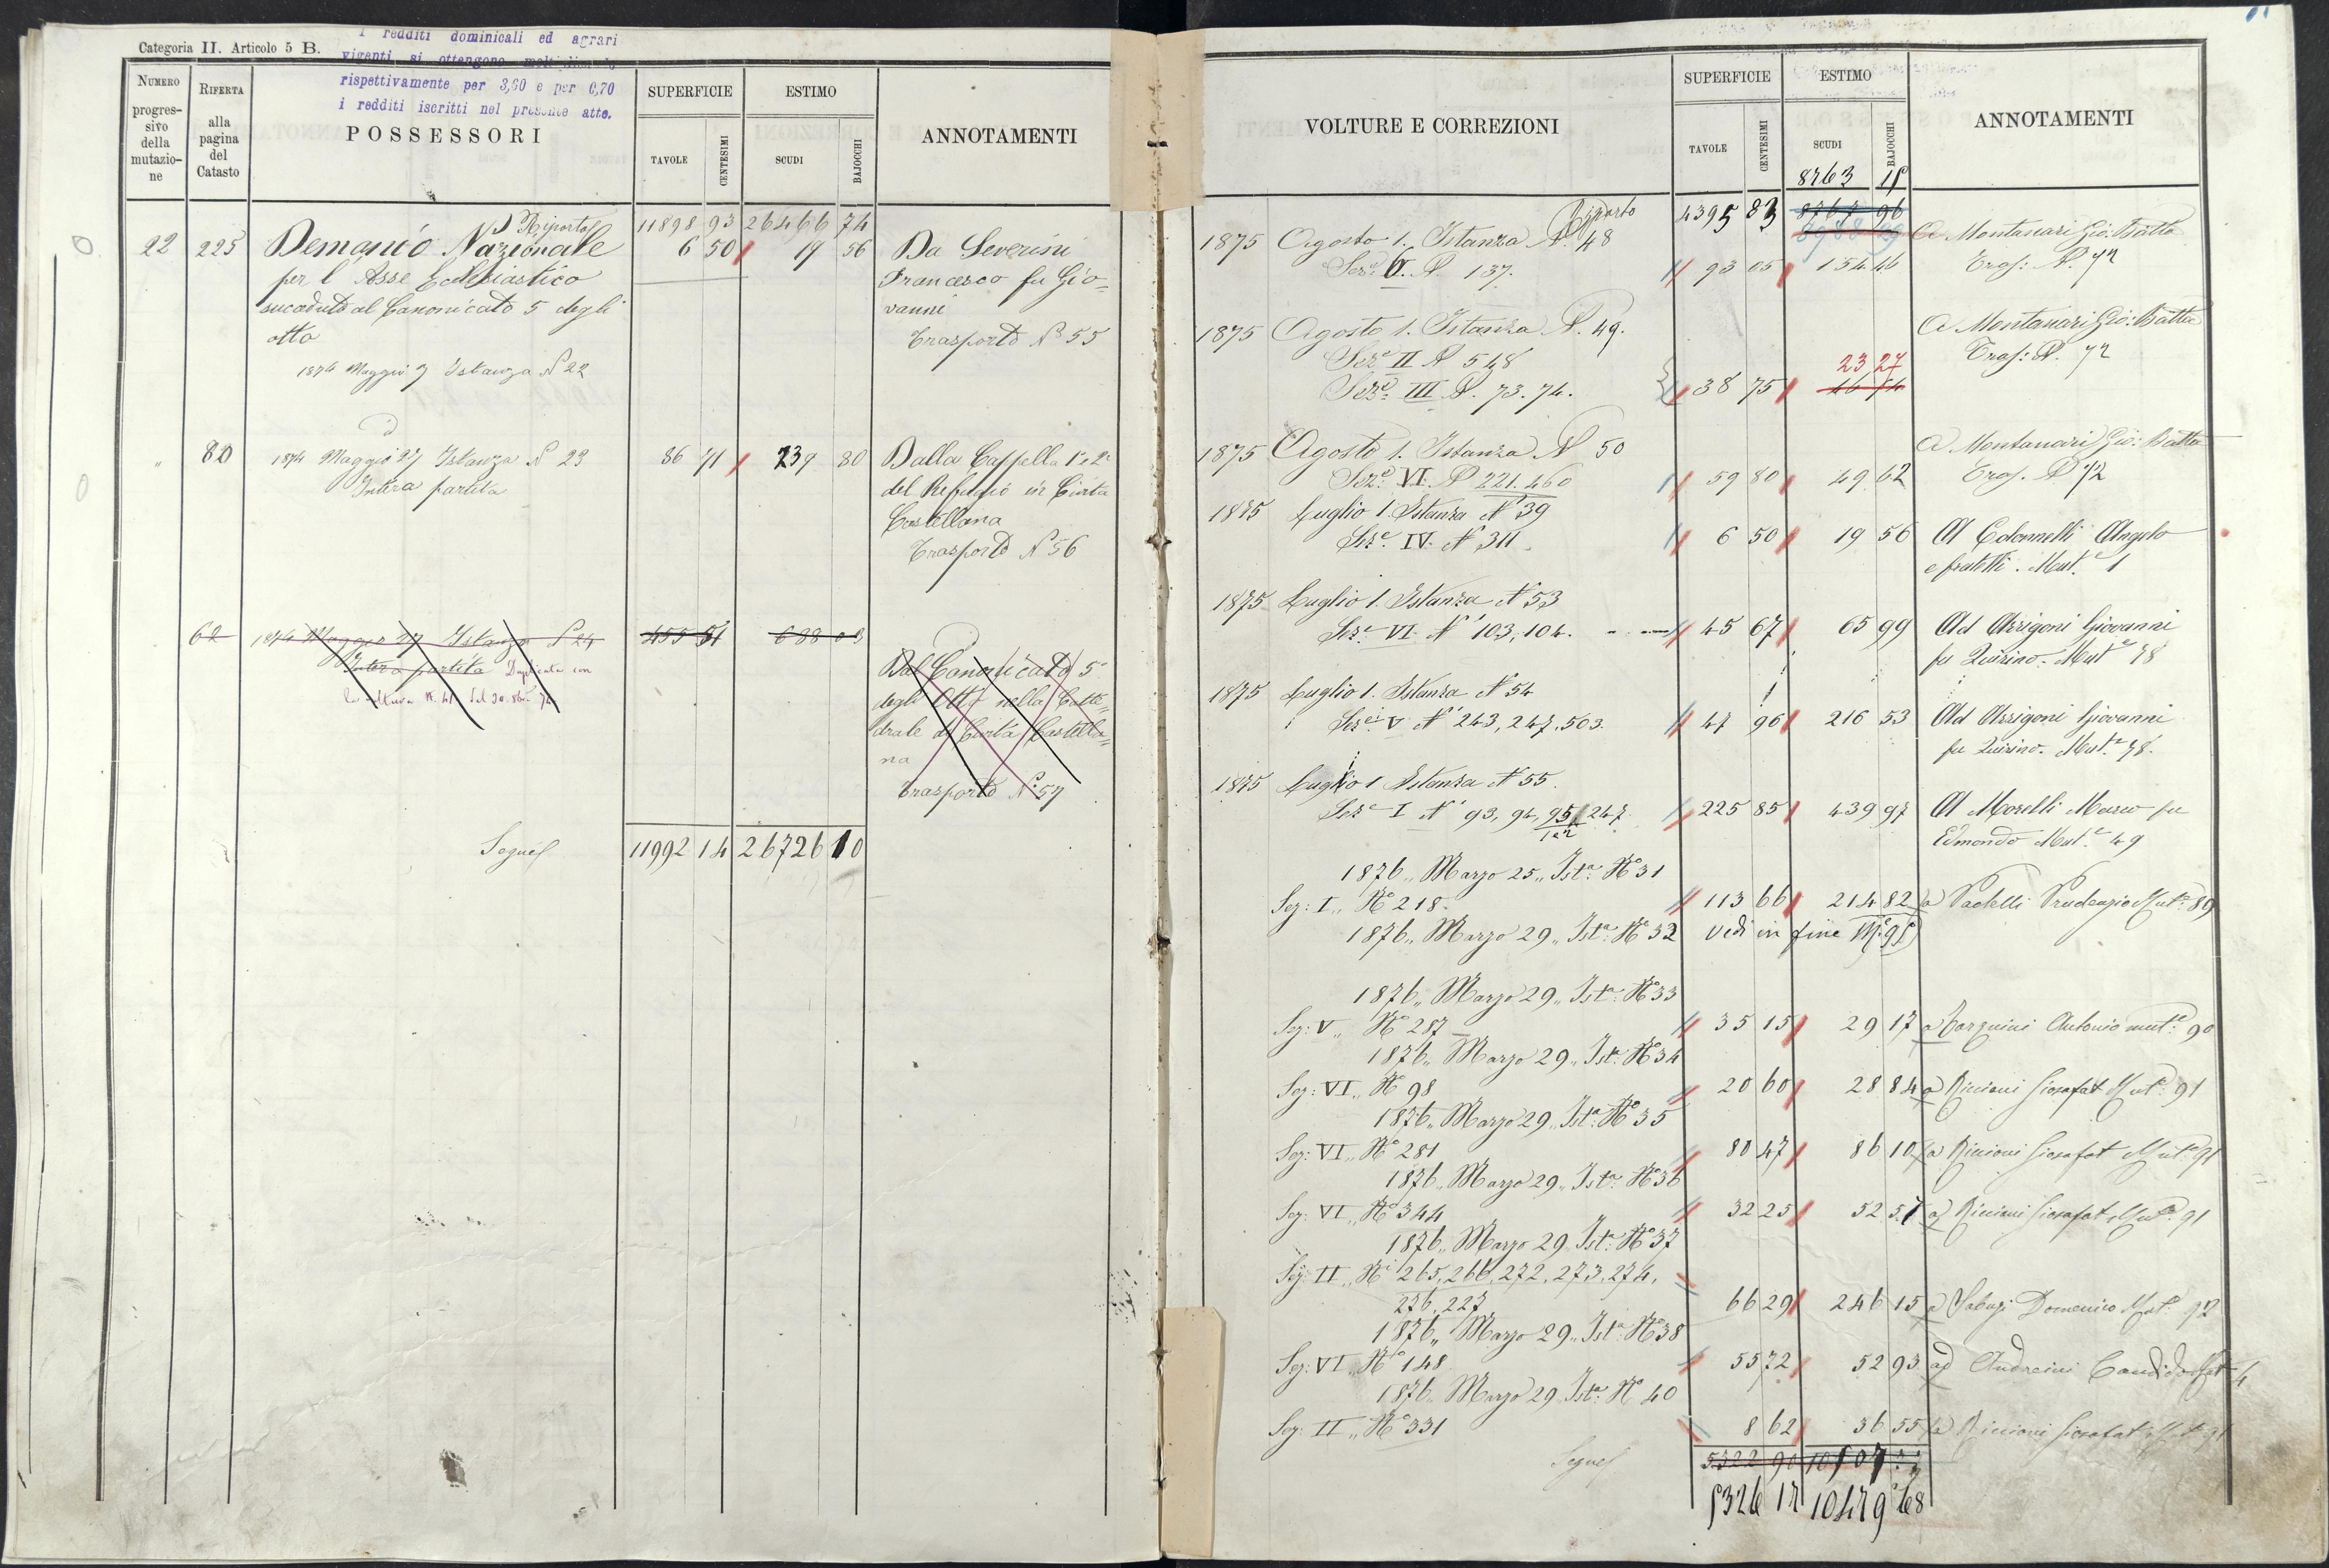 Categoria II. Articolo 5 B.
I redditi dominicali ed agrari
vigenti si ottengono moltiplicando
rispettivamente per 3,60 e per 0,70
i redditi iscritti nel presente atto.
NUMERO
progres-
sivo
della
mutazio-
ne
RIFERTA
alla
pagina
del
Catasto
POSSESSORI
SUPERFICIE
TAVOLE
CENTESIMI
ESTIMO
SCUDI
BAJOCCHI
ANNOTAMENTI
Riporto 11898 93 26466 74
22 225 Demanio Nazionale 6 50 19 56 Da Severini
per l'Asse Ecclesiastico Francesco fu Gio=
succeduto al Canonicato 5 degli vanni
otto Trasporto N° 55
1874 Maggio 7 Istanza N 22
" 80 1874 Maggio 27 Istanza N 23 86 71 239 80 Dalla Cappella 1a e 2a
Intera partita del Refugio in Civita
Castellana
Trasporto N 56
62 1874 Maggio 27 Istanza N 24 455 51 688 03
Intera partita Duplicata con Dal Canonicato 5°
la voltura N. 41 del degli Otto nella Catte=
drale di Civita Castella=
na
Trasporto N° 57
Segue 11992 14 26726 10
VOLTURE E CORREZIONI
SUPERFICIE
TAVOLE
CENTESIMI
ESTIMO
SCUDI
BAJOCCHI
ANNOTAMENTI
8763 15
Riporto 4395 83 8767 96
1875 Agosto 1. Istanza N. 48 A Montanari Gio: Batta
Seze V. N 137. 93 05 154 46 Trasf: N. 72
1875 Agosto 1. Istanza N. 49. A Montanari Gio: Batta
Seze II N 548 23 27 Trasf: N. 72
Seze III N. 73. 74. 38 75 46 54
1875 Agosto 1. Istanza N 50 A Montanari Gio: Batta
Seze VI. N 221. 460 59 80 49 62 Trasf. N 72
1875 Luglio 1. Istanza N° 39
Seze IV. N° 311. 6 50 19 56 Al Colonnelli Angelo
e fratelli. Mut.e 1
1875 Luglio 1. Istanza N° 53
Seze VI N' 103, 104. 45 67 65 99 Ad Arrigoni Giovanni
fu Quirino. Mut.e 78
1875 Luglio 1. Istanza N° 54
Seze V N' 243, 247, 503. 47 96 216 53 Ad Arrigoni Giovanni
fu Quirino. Mut.e 78.
1875 Luglio 1 Istanza N° 55.
Seze I N' 93, 94, 95, 247 225 85 439 97 Al Morelli Marco fu
1 e 2 Edmondo Mut.e 49
1876,, Marzo 25,, Ista: N° 31
Sez: I,, N° 218. 113 66 214 82 a Paolelli Prudenzio Mut.e 89
1876,, Marzo 29,, Ista: N° 32 Vedi in fine
1876,, Marzo 29,, Ista: N° 33
Sez: V,, N° 287 35 15 29 17 a Tarquini Antonio mut.e 90
1876,, Marzo 29,, Ista: N° 34
Sez: VI,, N° 98 20 60 28 84 a Riccioni Giosafat Mut.e 91
1876,, Marzo 29,, Ista: N° 35
Sez: VI,, N° 281 80 47 86 10 a Riccioni Giosafat Mut.e 91
1876,, Marzo 29,, Ista: N° 36
Sez: VI,, N° 344 32 25 52 57 a Riccioni Giosafat Mut.e 91
1876,, Marzo 29 Ista: N° 37
Sez: II,, Ni 265, 266, 272, 273, 274,
276, 227 66 29 246 15 a Domenico Mut.e 92
1876,, Marzo 29,, Ista: N° 38
Sez: VI,, N° 148 55 72 52 93 ad Andreini Candido Mut.e 4
1876,, Marzo 29 Ista: N° 40
Sez: II,, N° 331 8 62 36 55 a Riccioni Giosafat Mut.e 91
Segue 5322 90
5326 17 10479 68